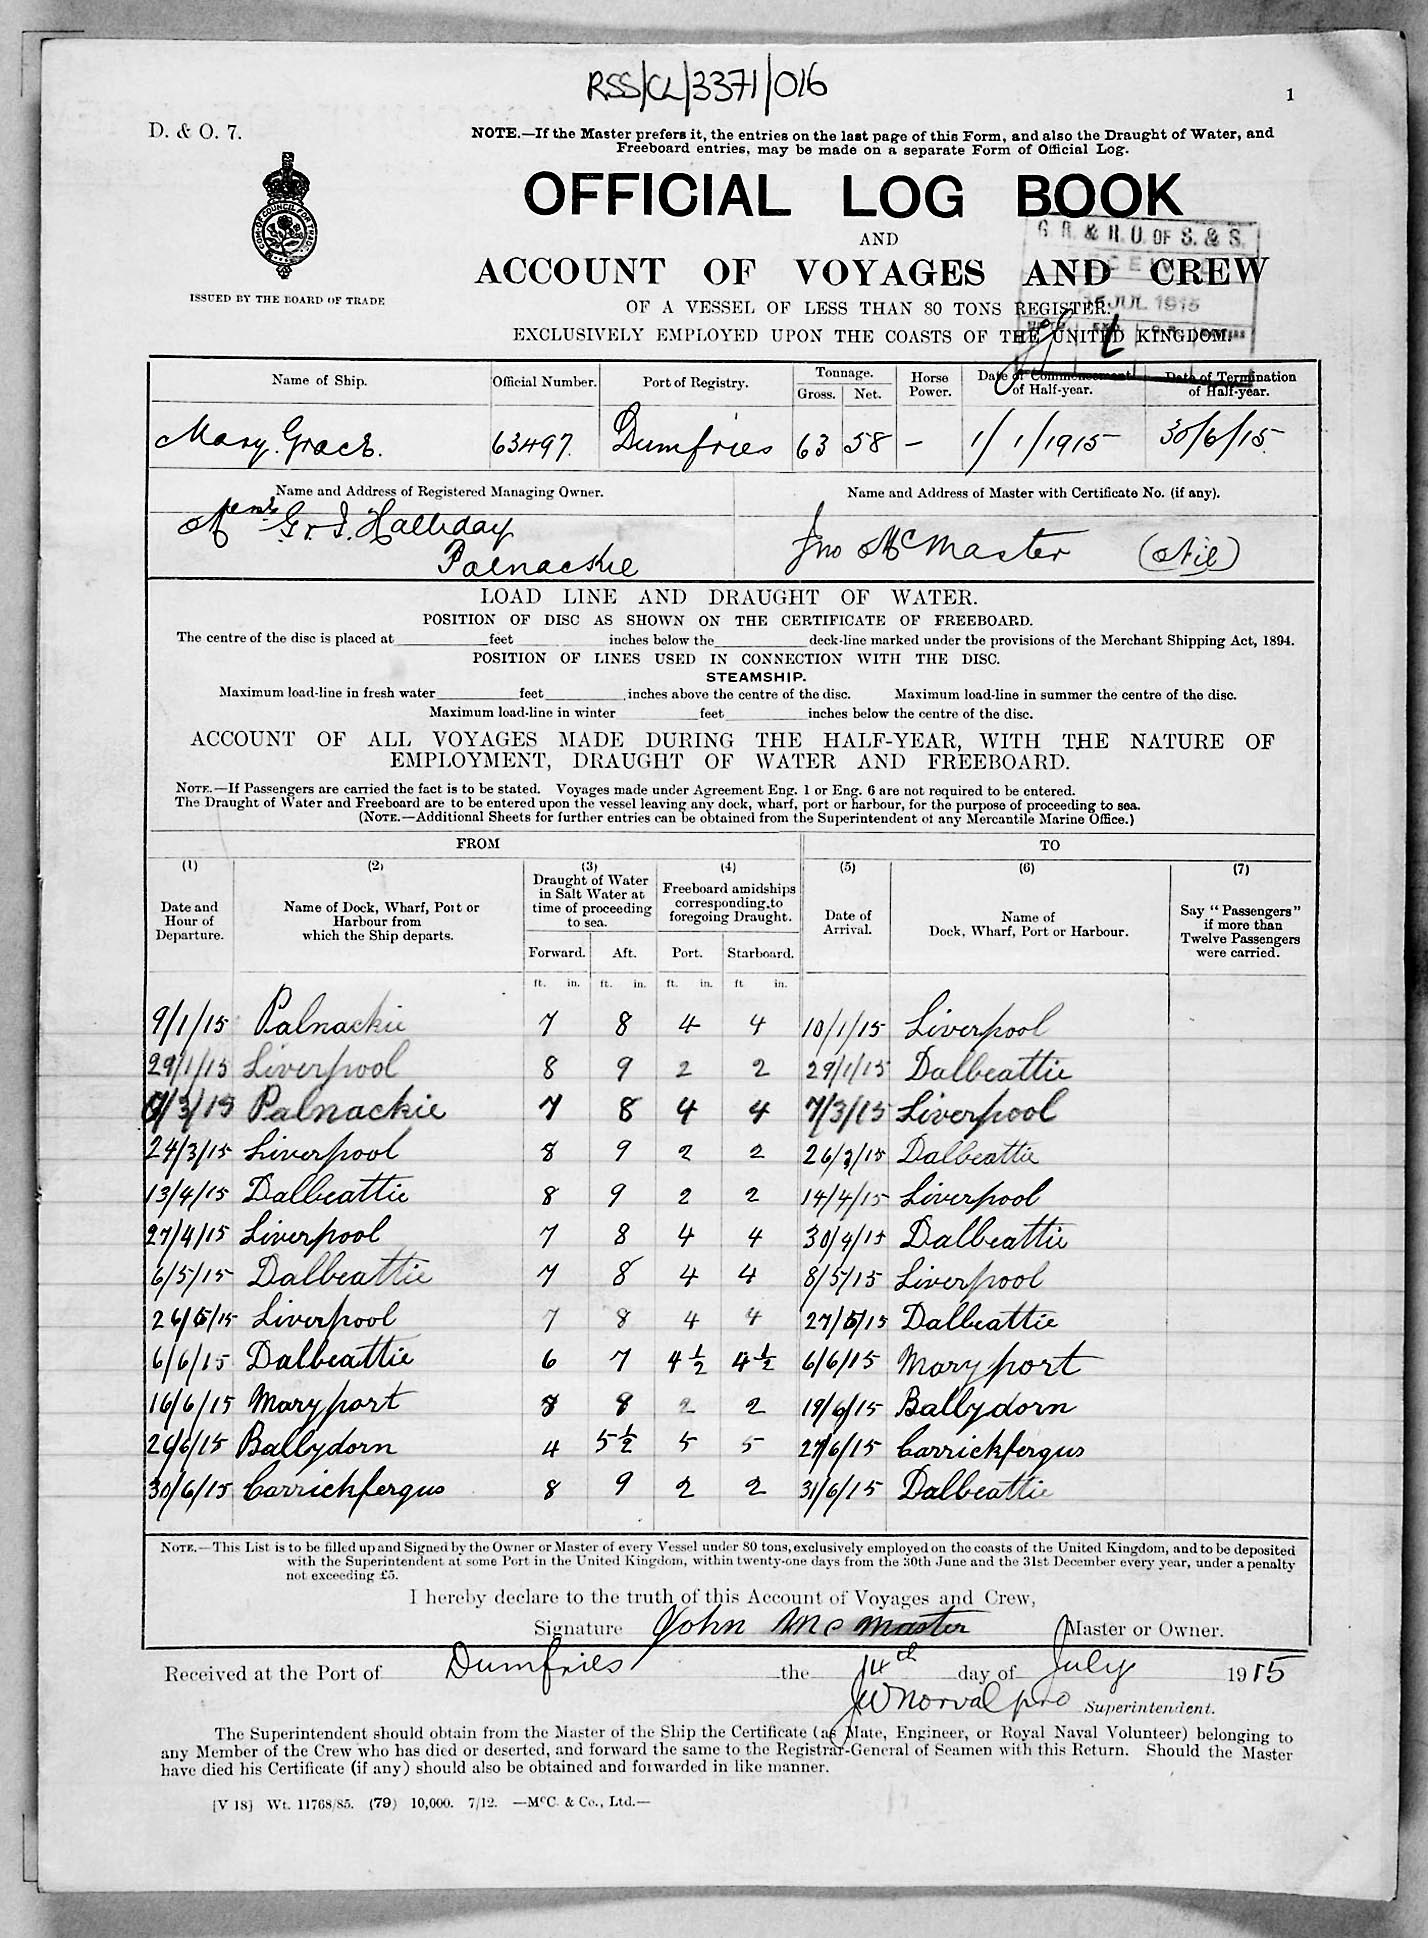 RSS/CL/3371/016
1
D. & O. 7.
NOTE.—If the Master prefers it, the entries on the last page of this Form, and also the Draught of Water, and
Freeboard entries, may be made on a separate Form of Official Log.
OFFICIAL LOG BOOK
AND
ACCOUNT OF VOYAGES AND CREW
OF A VESSEL OF LESS THAN 80 TONS REGISTER.
EXCLUSIVELY EMPLOYED UPON THE COASTS OF THE UNITED KINGDOM.
G. R. & R. U. OF S. & S.
15 JUL 1915
ISSUED BY THE BOARD OF TRADE
Name of Ship. Official Number. Port of Registry. Tonnage. Gross. Net. Horse Power. Date of Commencement of Half-year. Date of Termination of Half-year.
Mary Grace. 63497. Dumfries 63 58 — 1/1/1915 30/6/15.
Name and Address of Registered Managing Owner. Name and Address of Master with Certificate No. (if any).
Messrs G. & J. Halliday Jno McMaster (Nil)
Palnackie
LOAD LINE AND DRAUGHT OF WATER.
POSITION OF DISC AS SHOWN ON THE CERTIFICATE OF FREEBOARD.
The centre of the disc is placed at feet inches below the deck-line marked under the provisions of the Merchant Shipping Act, 1894.
POSITION OF LINES USED IN CONNECTION WITH THE DISC.
STEAMSHIP.
Maximum load-line in fresh water feet inches above the centre of the disc. Maximum load-line in summer the centre of the disc.
Maximum load-line in winter feet inches below the centre of the disc.
ACCOUNT OF ALL VOYAGES MADE DURING THE HALF-YEAR, WITH THE NATURE OF
EMPLOYMENT, DRAUGHT OF WATER AND FREEBOARD.
NOTE.—If Passengers are carried the fact is to be stated. Voyages made under Agreement Eng. 1 or Eng. 6 are not required to be entered.
The Draught of Water and Freeboard are to be entered upon the vessel leaving any dock, wharf, port or harbour, for the purpose of proceeding to sea.
(NOTE.—Additional Sheets for further entries can be obtained from the Superintendent of any Mercantile Marine Office.)
FROM TO
(1) (2) (3) (4) (5) (6) (7)
Date and Hour of Departure. Name of Dock, Wharf, Port or Harbour from which the Ship departs. Draught of Water in Salt Water at time of proceeding to sea. Freeboard amidships corresponding to foregoing Draught. Date of Arrival. Name of Dock, Wharf, Port or Harbour. Say "Passengers" if more than Twelve Passengers were carried.
Forward. Aft. Port. Starboard.
ft. in. ft. in. ft. in. ft in.
9/1/15 Palnackie 7 8 4 4 10/1/15 Liverpool
29/1/15 Liverpool 8 9 2 2 29/1/15 Dalbeattie
/3/15 Palnackie 7 8 4 4 7/3/15 Liverpool
24/3/15 Liverpool 8 9 2 2 26/3/15 Dalbeattie
13/4/15 Dalbeattie 8 9 2 2 14/4/15 Liverpool
27/4/15 Liverpool 7 8 4 4 30/4/15 Dalbeattie
6/5/15 Dalbeattie 7 8 4 4 8/5/15 Liverpool
26/5/15 Liverpool 7 8 4 4 27/5/15 Dalbeattie
6/6/15 Dalbeattie 6 7 4½ 4½ 6/6/15 Maryport
16/6/15 Maryport 8 8 2 2 19/6/15 Ballydorn
26/6/15 Ballydorn 4 5½ 5 5 27/6/15 Carrickfergus
30/6/15 Carrickfergus 8 9 2 2 31/6/15 Dalbeattie
NOTE.—This List is to be filled up and Signed by the Owner or Master of every Vessel under 80 tons, exclusively employed on the coasts of the United Kingdom, and to be deposited
with the Superintendent at some Port in the United Kingdom, within twenty-one days from the 30th June and the 31st December every year, under a penalty
not exceeding £5.
I hereby declare to the truth of this Account of Voyages and Crew,
Signature John McMaster Master or Owner.
Received at the Port of Dumfries the 14th day of July 1915
JW Norval pro Superintendent.
The Superintendent should obtain from the Master of the Ship the Certificate (as Mate, Engineer, or Royal Naval Volunteer) belonging to
any Member of the Crew who has died or deserted, and forward the same to the Registrar-General of Seamen with this Return. Should the Master
have died his Certificate (if any) should also be obtained and forwarded in like manner.
[V 18] Wt. 11768/85. (79) 10,000. 7/12. —McC. & Co., Ltd.—